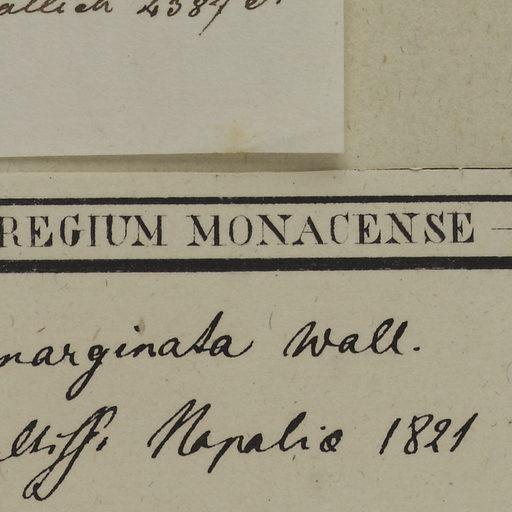 allich 4384 C.
REGIUM MONACENSE —
marginata Wall.
altiss. Napaliæ 1821